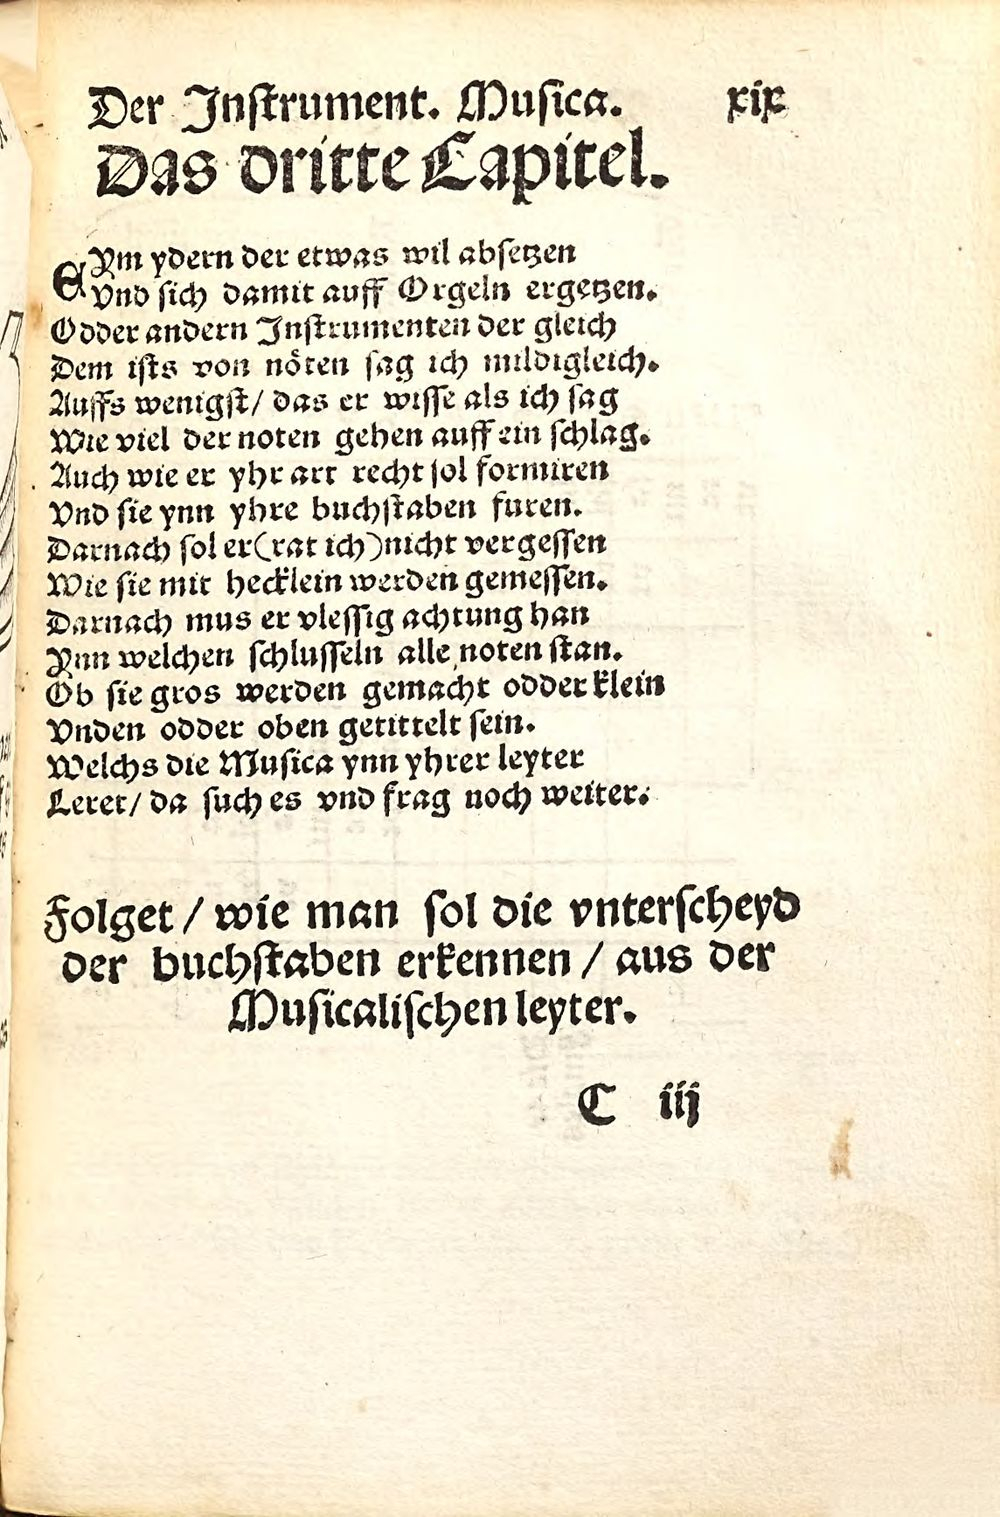 Der Inſtrument. Muſica. xix
Das dritte Capitel.
EYm ydern der etwas wil abſetzen
Vnd ſich damit auff Orgeln ergetzen.
Odder andern Inſtrumenten der gleich
Dem iſts von nöten ſag ich mildigleich.
Auffs wenigſt/ das er wiſſe als ich ſag
Wie viel der noten gehen auff ein ſchlag.
Auch wie er yhr art recht ſol formiren
Vnd ſie ynn yhre buchſtaben furen.
Darnach ſol er(rat ich)nicht vergeſſen
Wie ſie mit hecklein werden gemeſſen.
Darnach mus er vleſſig achtung han
Ynn welchen ſchluſſeln alle noten ſtan.
Ob ſie gros werden gemacht odder klein
Vnden odder oben getittelt ſein.
Welchs die Muſica ynn yhrer leyter
Leret/ da ſuch es vnd frag noch weiter.
Folget / wie man ſol die vnterſcheyd
der buchſtaben erkennen / aus der
Muſicaliſchen leyter.
C iij